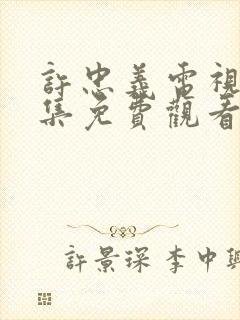 許忠義電視
集免費觀看
許景琛 李中興